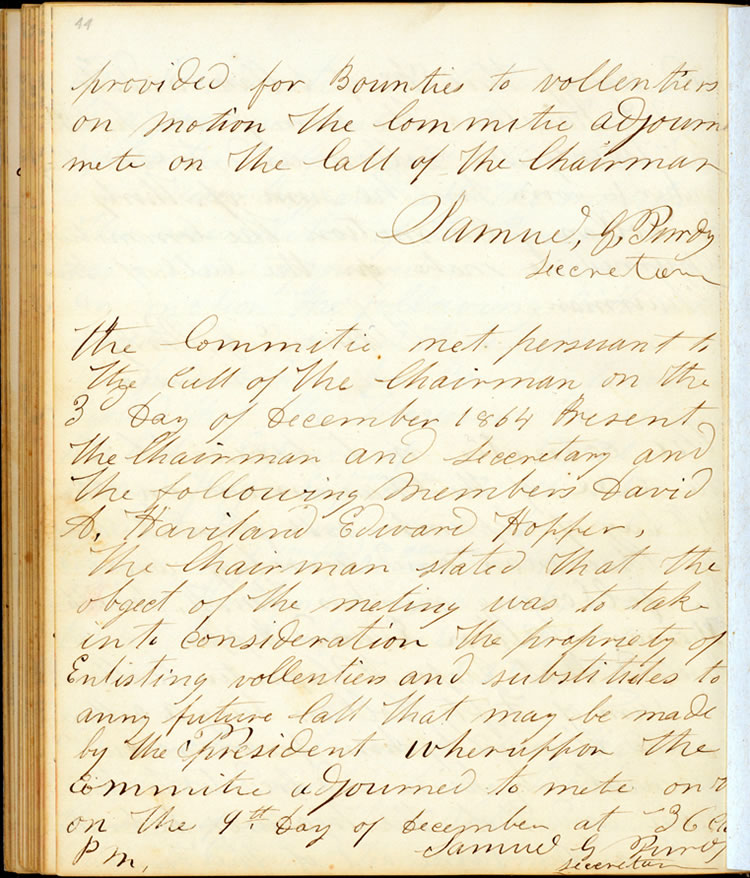 44
provided for Bounties to vollentiers
on motion the Committie adjourn
mete on the Call of the Chairman
Samuel G. Purdy
Secretary
the Committie met persuant to
the Call of the Chairman on the
3 Day of December 1864 Present
the Chairman and Secretary and
the following Members David
A. Haviland Edward Hopper,
the Chairman stated that the
obgect of the meting was to take
into consideration the propriety of
Enlisting vollentiers and substitutes to
anny future Call that may be made
by the President wheruppon the
Committie adjourned to mete on
on the 9th Day of December at 3
P m,
Samuel G Purdy
Secretary